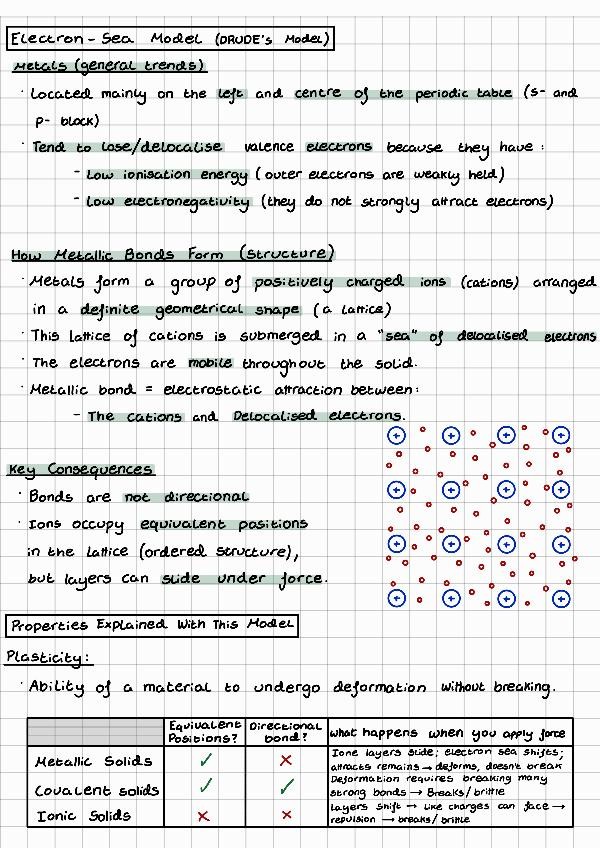 Electron-Sea Model (DRUDE's Model)
Metals (general trends)
· Located mainly on the left and centre of the periodic table (s- and
p- block)
· Tend to lose/delocalise valence electrons because they have:
- Low ionisation energy (outer electrons are weakly held)
- Low electronegativity (they do not strongly attract electrons)
How Metallic Bonds Form (Structure)
· Metals form a group of positively charged ions (cations) arranged
in a definite geometrical shape (a lattice)
· This lattice of cations is submerged in a "sea" of delocalised electrons
· The electrons are mobile throughout the solid.
· Metallic bond = electrostatic attraction between:
- The cations and Delocalised electrons.
+ + + +
Key Consequences
· Bonds are not directional
+ + + +
· Ions occupy equivalent positions
in the lattice (ordered structure),
+ + + +
but layers can slide under force.
+ + + +
Properties Explained With This Model
Plasticity:
· Ability of a material to undergo deformation without breaking.
Equivalent Positions? Directional bond? What happens when you apply force
Metallic Solids ✓ ✗ Ione layers slide; electron sea shifts;
attracts remains → deforms, doesn't break
Covalent solids ✓ ✓ Deformation requires breaking many
strong bonds → Breaks/brittle
Ionic Solids ✗ ✗ Layers shift → Like charges can face →
repulsion → breaks/brittle